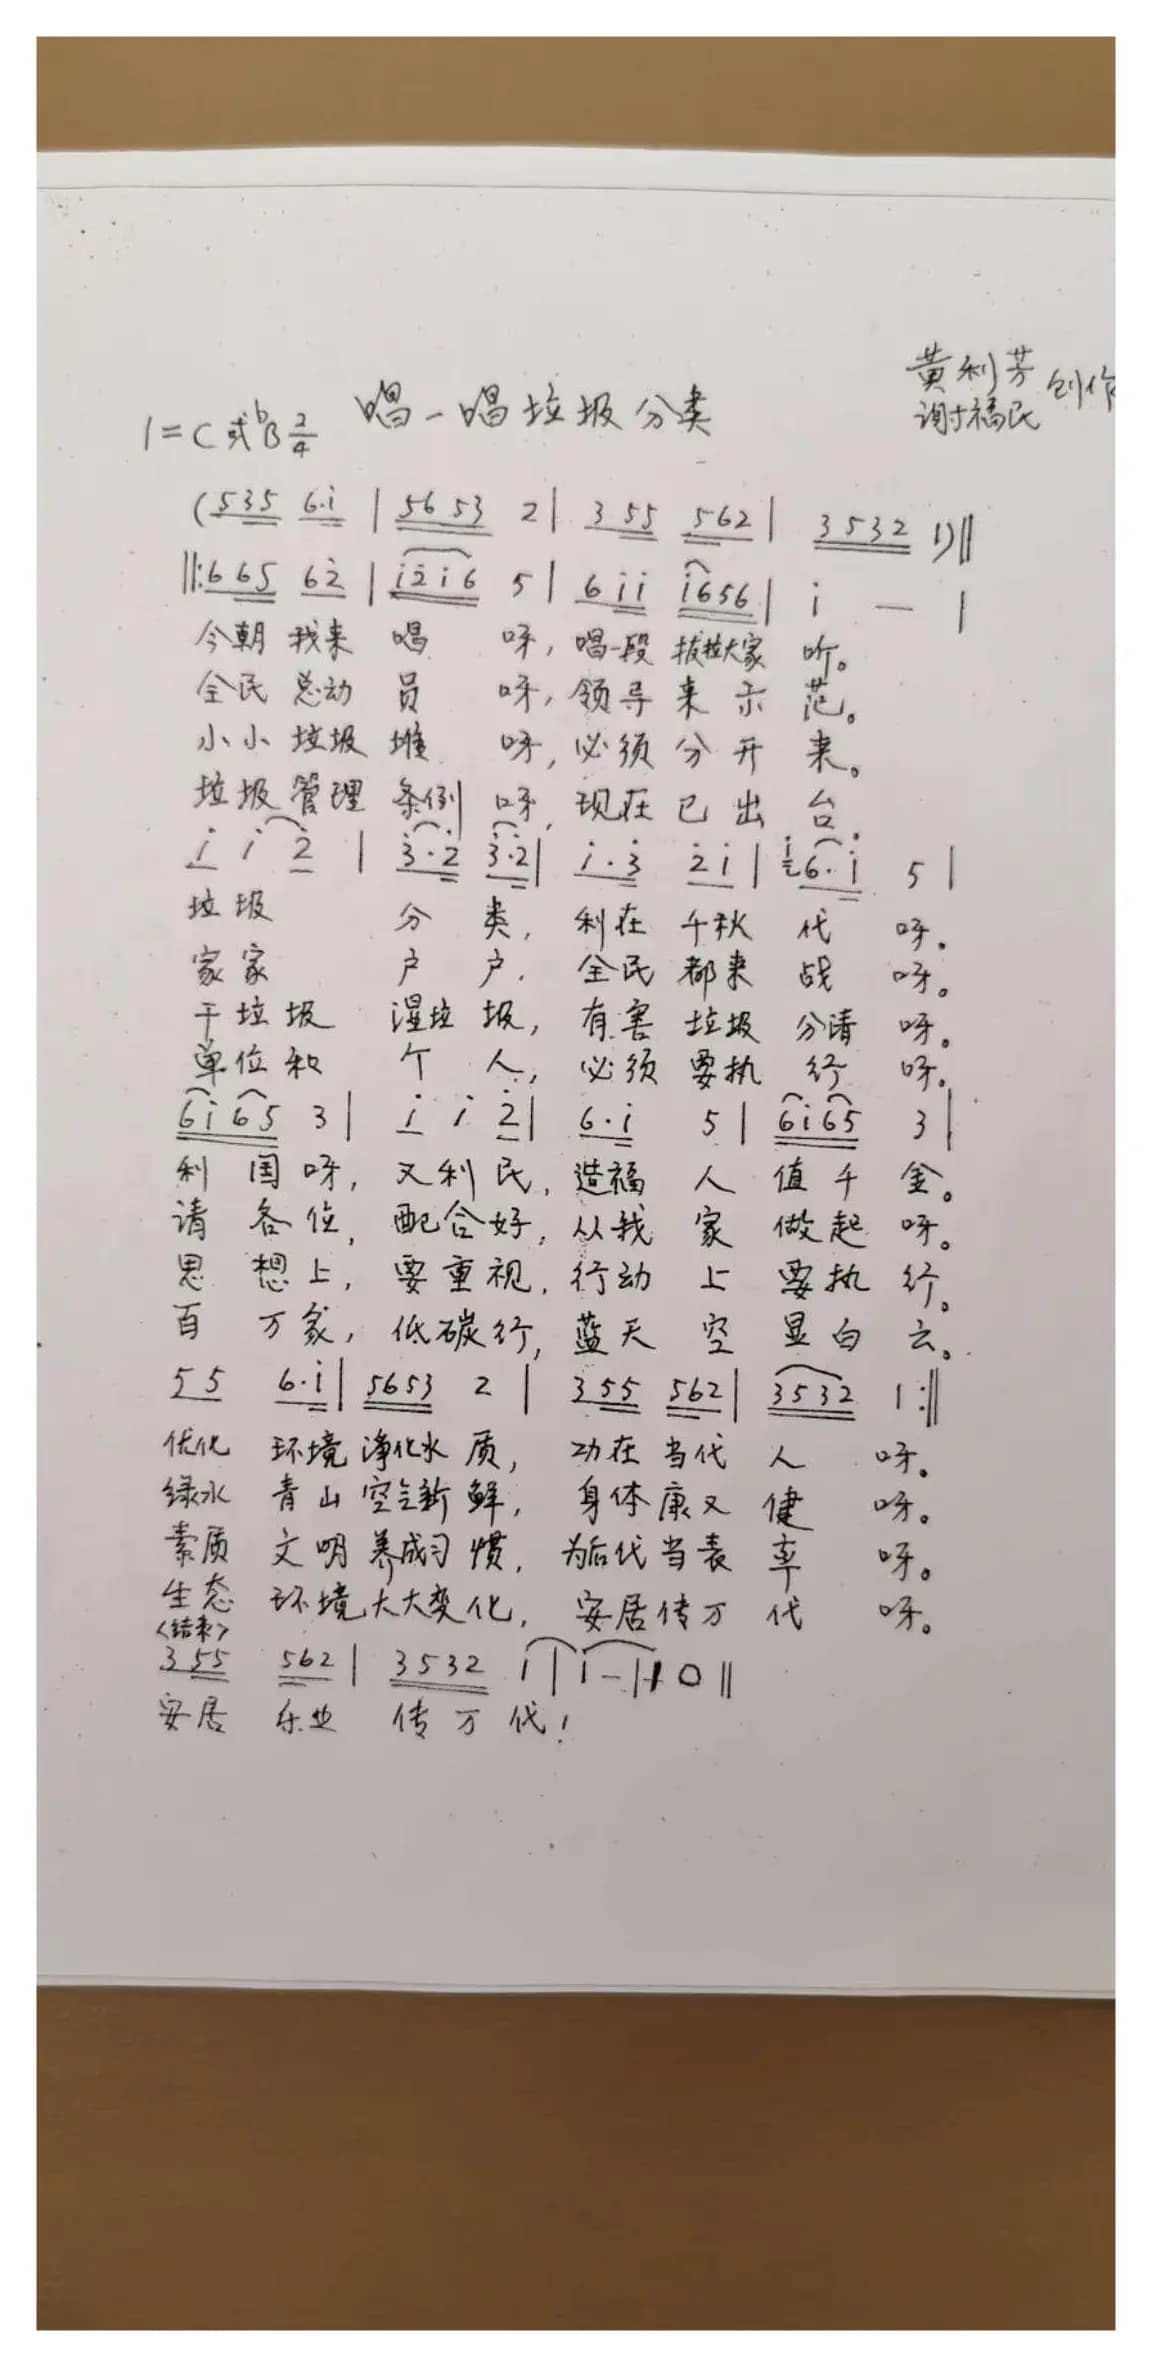 黄利芳
谢福民 创作
1=C或bB 2/4 唱一唱垃圾分类
(535 6·i | 5653 2 | 355 562 | 3532 1)‖
‖:665 62̇ | i2̇i6 5 | 6ii i656 | i — |
今朝我来唱 呀,唱一段拨拉大家听。
全民总动员 呀,领导来示范。
小小垃圾堆 呀,必须分开来。
垃圾管理条例 呀,现在已出台.
i i 2̇ | 3̇·2̇ 3̇·2̇ | i·3̇ 2̇i | i6·i 5 |
垃圾 分类,利在千秋代 呀.
家家 户户.全民都来战 呀。
干垃圾 湿垃圾,有害垃圾分清 呀。
单位和 个人,必须要执行 呀.
6i65 3 | i i 2̇ | 6·i 5 | 6i65 3 |
利国呀,又利民,造福人值千金。
请各位,配合好,从我家做起呀。
思想上,要重视,行动上要执行。
百万家,低碳行,蓝天空显白云。
55 6·i | 5653 2 | 355 562 | 3532 1:‖
优化环境净化水质,功在当代人 呀.
绿水青山空气新鲜,身体康又健 呀。
素质文明养成习惯,为后代当表率 呀。
生态环境大大变化,安居传万代 呀.
<结束>
355 562 | 3532 i | i — | i 0 ‖
安居乐业传万代!